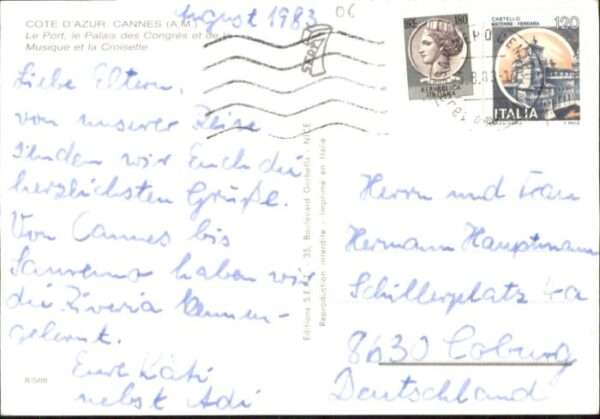 August 1983
06
COTE D'AZUR. CANNES (A.M.)
Le Port, le Palais des Congrès et de la
Musique et la Croisette
Liebe Eltern,
von unserer Reise
senden wir Euch die
herzlichsten Grüße.
Von Cannes bis
Sanremo haben wir
die Riveria kennen-
gelernt.
Eure Käti
nebst Adi
Editions S.E.P.T. 35, Boulevard Gorbella - NICE
Reproduction interdite - Imprimé en Italie
180
REPUBBLICA
ITALIANA
CASTELLO
120
ITALIA
Herrn und Frau
Hermann Hauptmann
Schillerplatz 4a
8630 Coburg
Deutschland